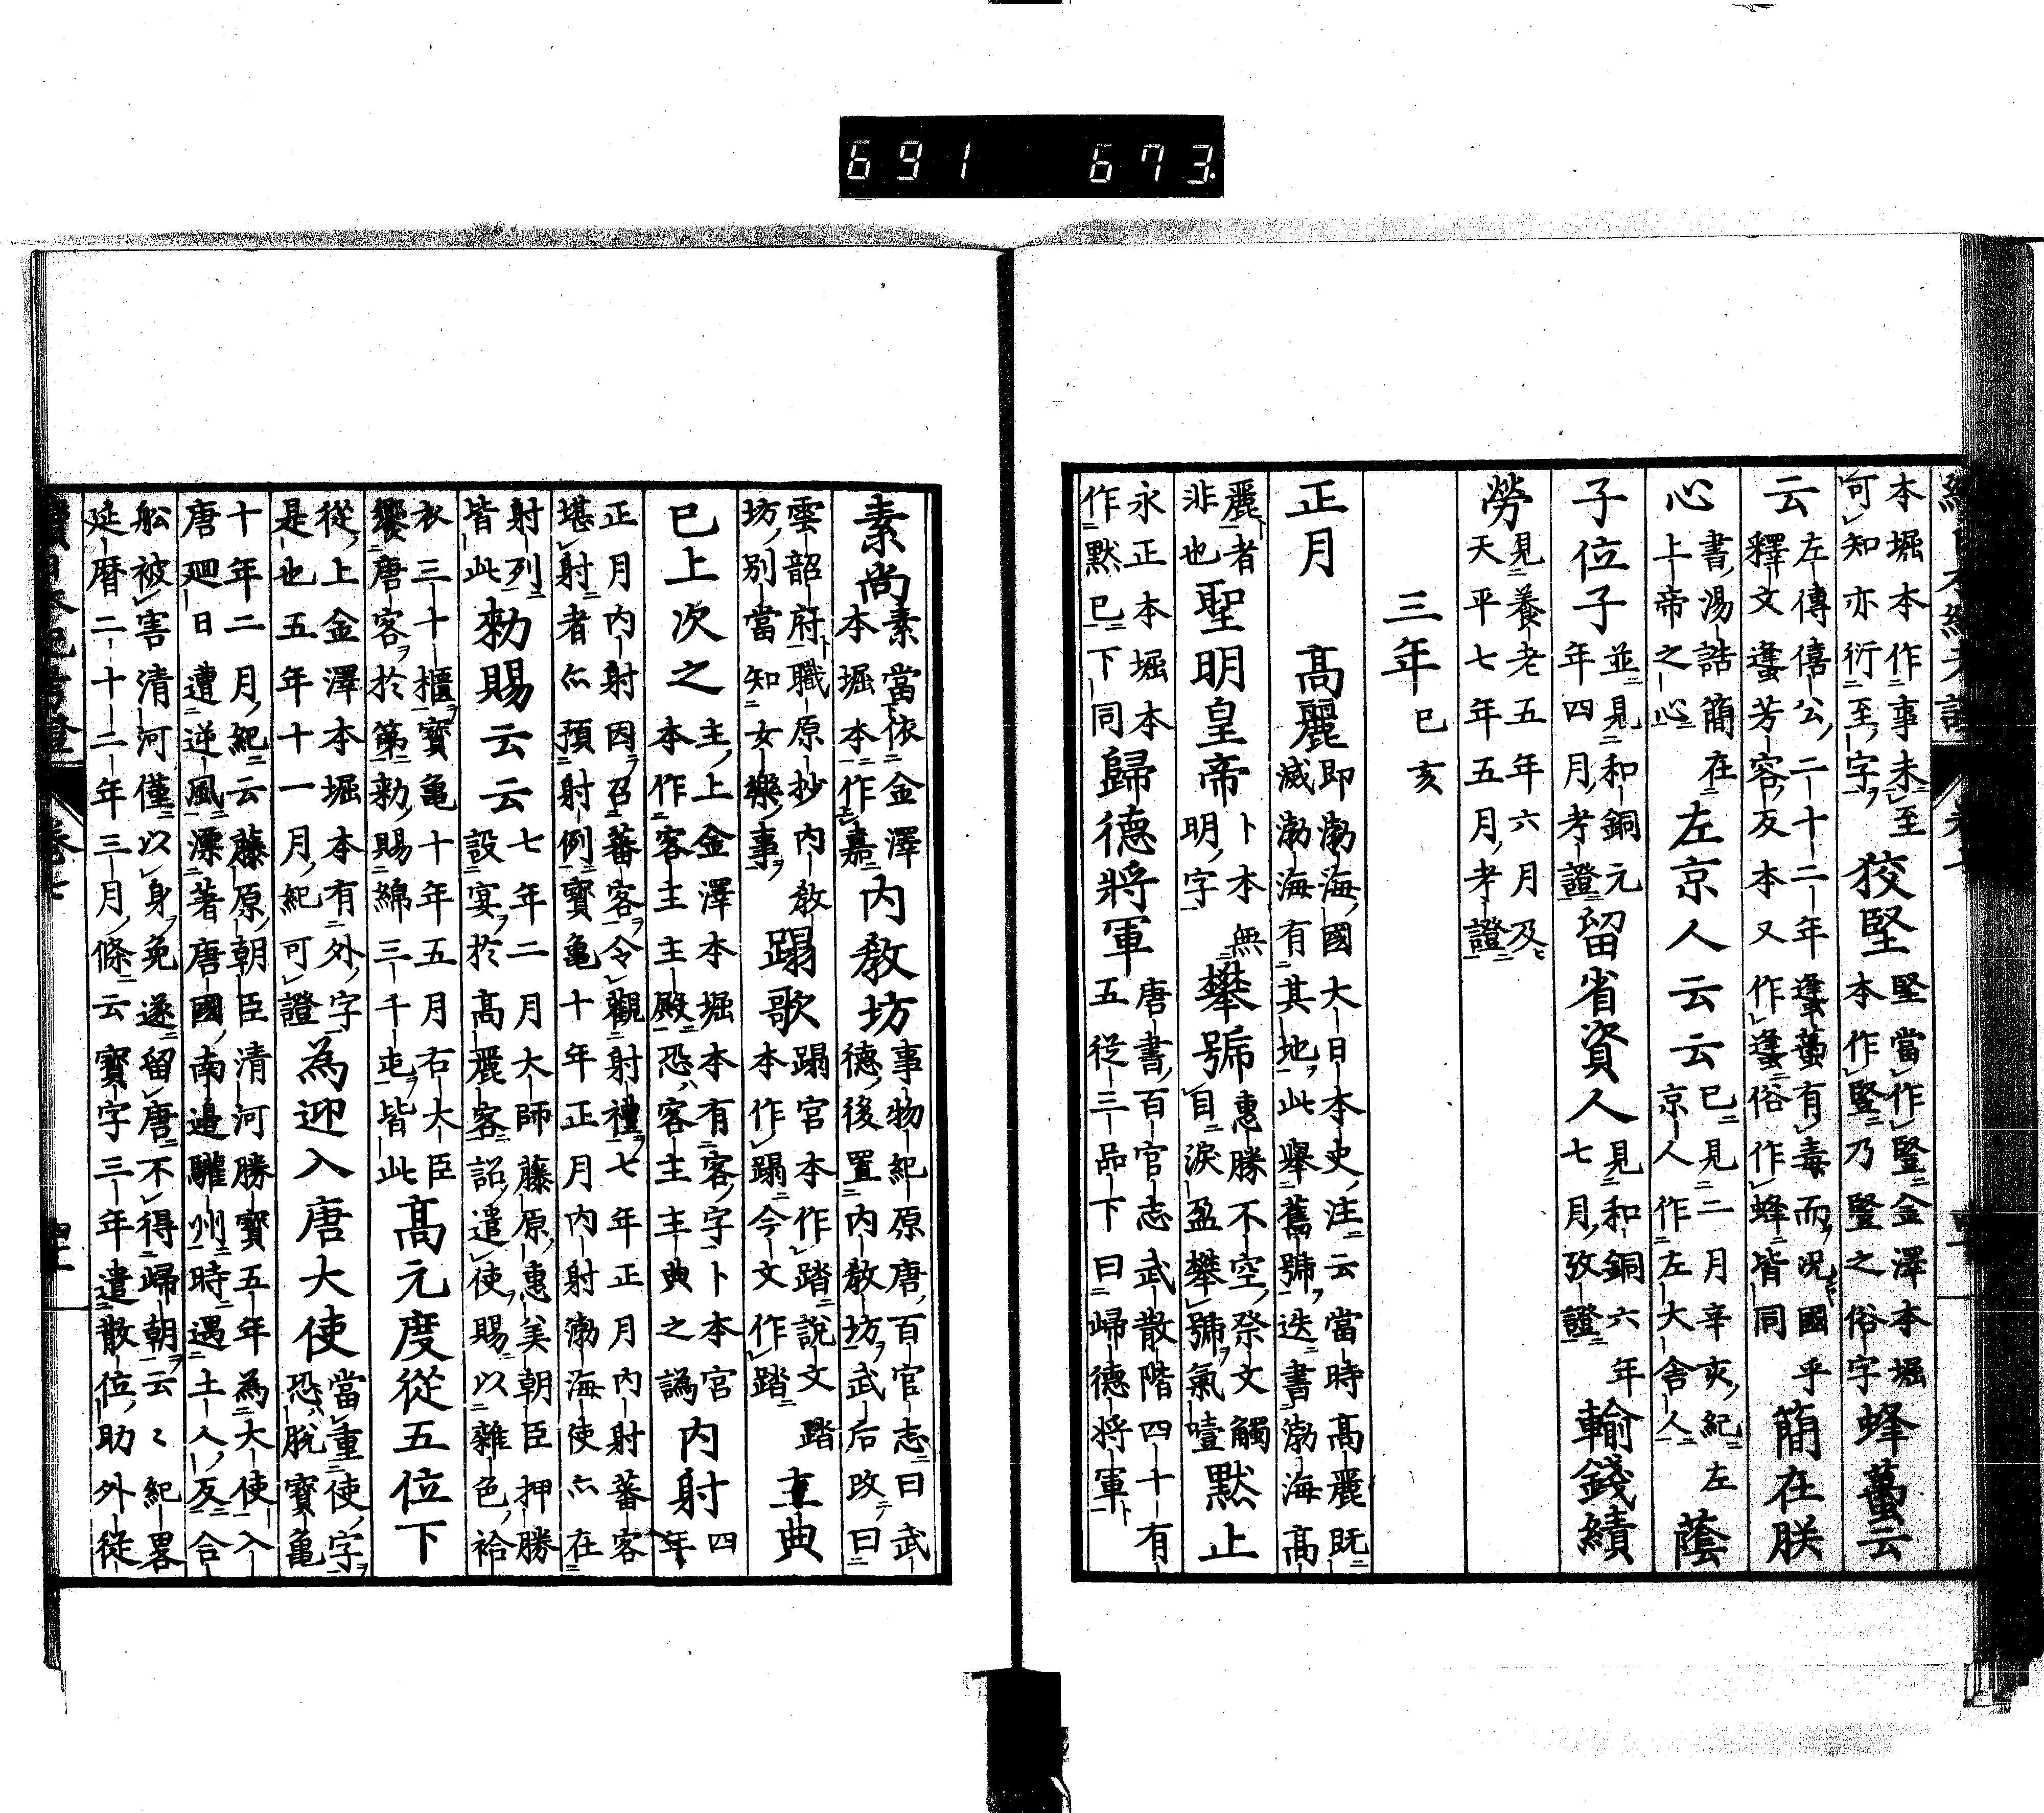 691 673
本堀本作事未至可知亦衍至字 狡堅 堅當作竪金澤本堀本作竪乃竪之俗字 蜂蠆云
云 左傳僖公二十二年蠭蠆有毒而況國乎釋文蠭芳容反本又作蠭俗作蜂皆同 簡在朕
心 書湯誥簡在上帝之心 左京人云云 已見二月辛亥紀左京人作左大舎人 蔭
子位子 並見和銅元年四月考證 留省資人 見和銅六年七月攷證 輸錢續
勞 見養老五年六月及天平七年五月考證
三年 己亥
正月 高麗 即渤海國大日本史注云當時高麗既滅渤海有其地此舉舊號迭書渤海高
麗者非也 聖明皇帝 卜本無明字 攀號 惠勝不空祭文觸目淚盈攀號氣噎 默止
永正本堀本作黙已下同 歸德將軍 唐書百官志武散階四十有五從三品下曰歸德將軍
素尚 素當依金澤本堀本作嘉 内教坊 事物紀原唐百官志曰武德後置内教坊武后改曰
雲韶府職原抄内教坊別當知女樂事 蹋歌 蹋宮本作踏說文踏本作蹋今文作踏 主典
已上次之 主上金澤本堀本有客字卜本宮本作客主主殿恐客主主典之譌 内射 四年
正月内射因召蕃客令觀射禮七年正月内射蕃客堪射者亦預射例寶亀十年正月内射渤海使亦在
射列皆此 勅賜云云 七年二月大師藤原惠美朝臣押勝設宴於高麗客詔遣使賜以雜色袷
衣三十櫃寶亀十年五月右大臣饗唐客於第勅賜綿三千屯皆此 高元度從五位下
從上金澤本堀本有外字是也五年十一月紀可證 為迎入唐大使 當重使字恐脫寶亀
十年二月紀云藤原朝臣清河勝寶五年為大使入唐廻日遭逆風漂著唐國南邊驩州時遇土人反合
舩被害清河僅以身免遂留唐不得歸朝云〻紀畧延暦二十二年三月條云寶字三年遣散位助外從
卷七